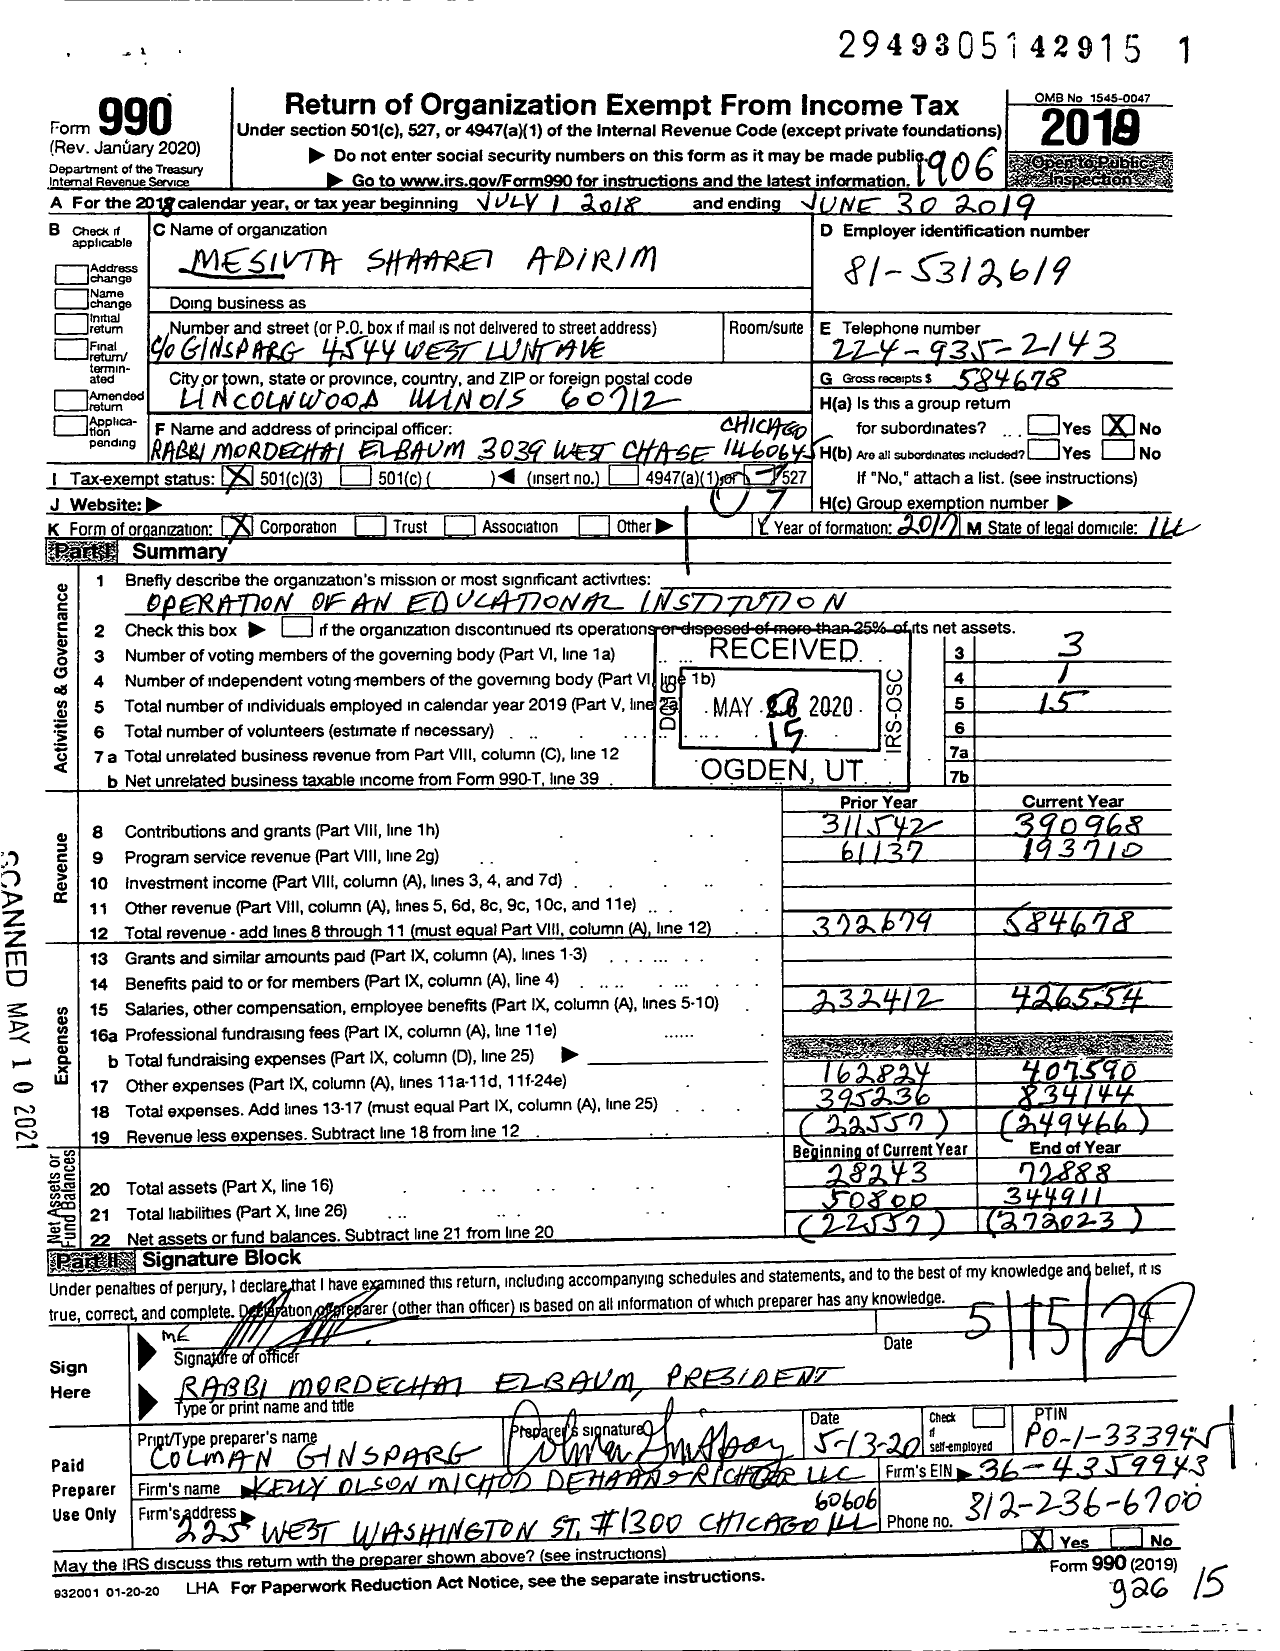 2949305142915 1
Form 990
(Rev. January 2020)
Department of the Treasury
Internal Revenue Service
Return of Organization Exempt From Income Tax
Under section 501(c), 527, or 4947(a)(1) of the Internal Revenue Code (except private foundations)
▶ Do not enter social security numbers on this form as it may be made public.
▶ Go to www.irs.gov/Form990 for instructions and the latest information.
1906
OMB No 1545-0047
2018
Open to Public
Inspection
A For the 2018 calendar year, or tax year beginning JULY 1 2018 and ending JUNE 30 2019
B Check if applicable
Address change
Name change
Initial return
Final return/terminated
Amended return
Application pending
C Name of organization
MESIVTA SHAAREI ADIRIM
Doing business as
Number and street (or P.O. box if mail is not delivered to street address) Room/suite
C/O GINSPARG 4544 WEST LUNT AVE
City or town, state or province, country, and ZIP or foreign postal code
LINCOLNWOOD ILLINOIS 60712
F Name and address of principal officer: CHICAGO
RABBI MORDECHAI ELBAUM 3039 WEST CHASE Ill 60645
D Employer identification number
81-5312619
E Telephone number
224-935-2143
G Gross receipts $ 584678
H(a) Is this a group return
for subordinates? Yes X No
H(b) Are all subordinates included? Yes No
If "No," attach a list. (see instructions)
H(c) Group exemption number ▶
I Tax-exempt status: X 501(c)(3) 501(c) ( ) ◀ (insert no.) 4947(a)(1) or 527
J Website: ▶
07
K Form of organization: X Corporation Trust Association Other ▶
L Year of formation: 2017 M State of legal domicile: ILL
Part I Summary
Activities & Governance
1 Briefly describe the organization's mission or most significant activities:
OPERATION OF AN EDUCATIONAL INSTITUTION
2 Check this box ▶ if the organization discontinued its operations or disposed of more than 25% of its net assets.
3 Number of voting members of the governing body (Part VI, line 1a) 3 3
4 Number of independent voting members of the governing body (Part VI, line 1b) 4 1
5 Total number of individuals employed in calendar year 2019 (Part V, line 2a) 5 15
6 Total number of volunteers (estimate if necessary) 6
7 a Total unrelated business revenue from Part VIII, column (C), line 12 7a
b Net unrelated business taxable income from Form 990-T, line 39 7b
RECEIVED
MAY 2020
15
IRS-OSC
OGDEN, UT
Prior Year Current Year
Revenue
8 Contributions and grants (Part VIII, line 1h) 311542 390968
9 Program service revenue (Part VIII, line 2g) 61137 193710
10 Investment income (Part VIII, column (A), lines 3, 4, and 7d)
11 Other revenue (Part VIII, column (A), lines 5, 6d, 8c, 9c, 10c, and 11e)
12 Total revenue - add lines 8 through 11 (must equal Part VIII, column (A), line 12) 372679 584678
Expenses
13 Grants and similar amounts paid (Part IX, column (A), lines 1-3)
14 Benefits paid to or for members (Part IX, column (A), line 4)
15 Salaries, other compensation, employee benefits (Part IX, column (A), lines 5-10) 232412 426554
16a Professional fundraising fees (Part IX, column (A), line 11e)
b Total fundraising expenses (Part IX, column (D), line 25) ▶
17 Other expenses (Part IX, column (A), lines 11a-11d, 11f-24e) 162824 407590
18 Total expenses. Add lines 13-17 (must equal Part IX, column (A), line 25) 395236 834144
19 Revenue less expenses. Subtract line 18 from line 12 (22557) (249466)
Net Assets or Fund Balances
Beginning of Current Year End of Year
20 Total assets (Part X, line 16) 28243 72888
21 Total liabilities (Part X, line 26) 50800 344911
22 Net assets or fund balances. Subtract line 21 from line 20 (22557) (272023)
SCANNED MAY 10 2021
Part II Signature Block
Under penalties of perjury, I declare that I have examined this return, including accompanying schedules and statements, and to the best of my knowledge and belief, it is
true, correct, and complete. Declaration of preparer (other than officer) is based on all information of which preparer has any knowledge.
Sign Here
ME
Signature of officer
Date 5/15/20
RABBI MORDECHAI ELBAUM, PRESIDENT
Type or print name and title
Paid Preparer Use Only
Print/Type preparer's name
COLMAN GINSPARG
Preparer's signature
Date
5-13-20
Check if self-employed
PTIN
PO-1-333945
Firm's name ▶ KELLY OLSON MICHOD DEHAAN & RICHTER LLC
Firm's EIN ▶ 36-4359943
Firm's address ▶ 60606
225 WEST WASHINGTON ST. #1300 CHICAGO ILL
Phone no. 312-236-6700
May the IRS discuss this return with the preparer shown above? (see instructions) X Yes No
932001 01-20-20 LHA For Paperwork Reduction Act Notice, see the separate instructions. Form 990 (2019)
926 15